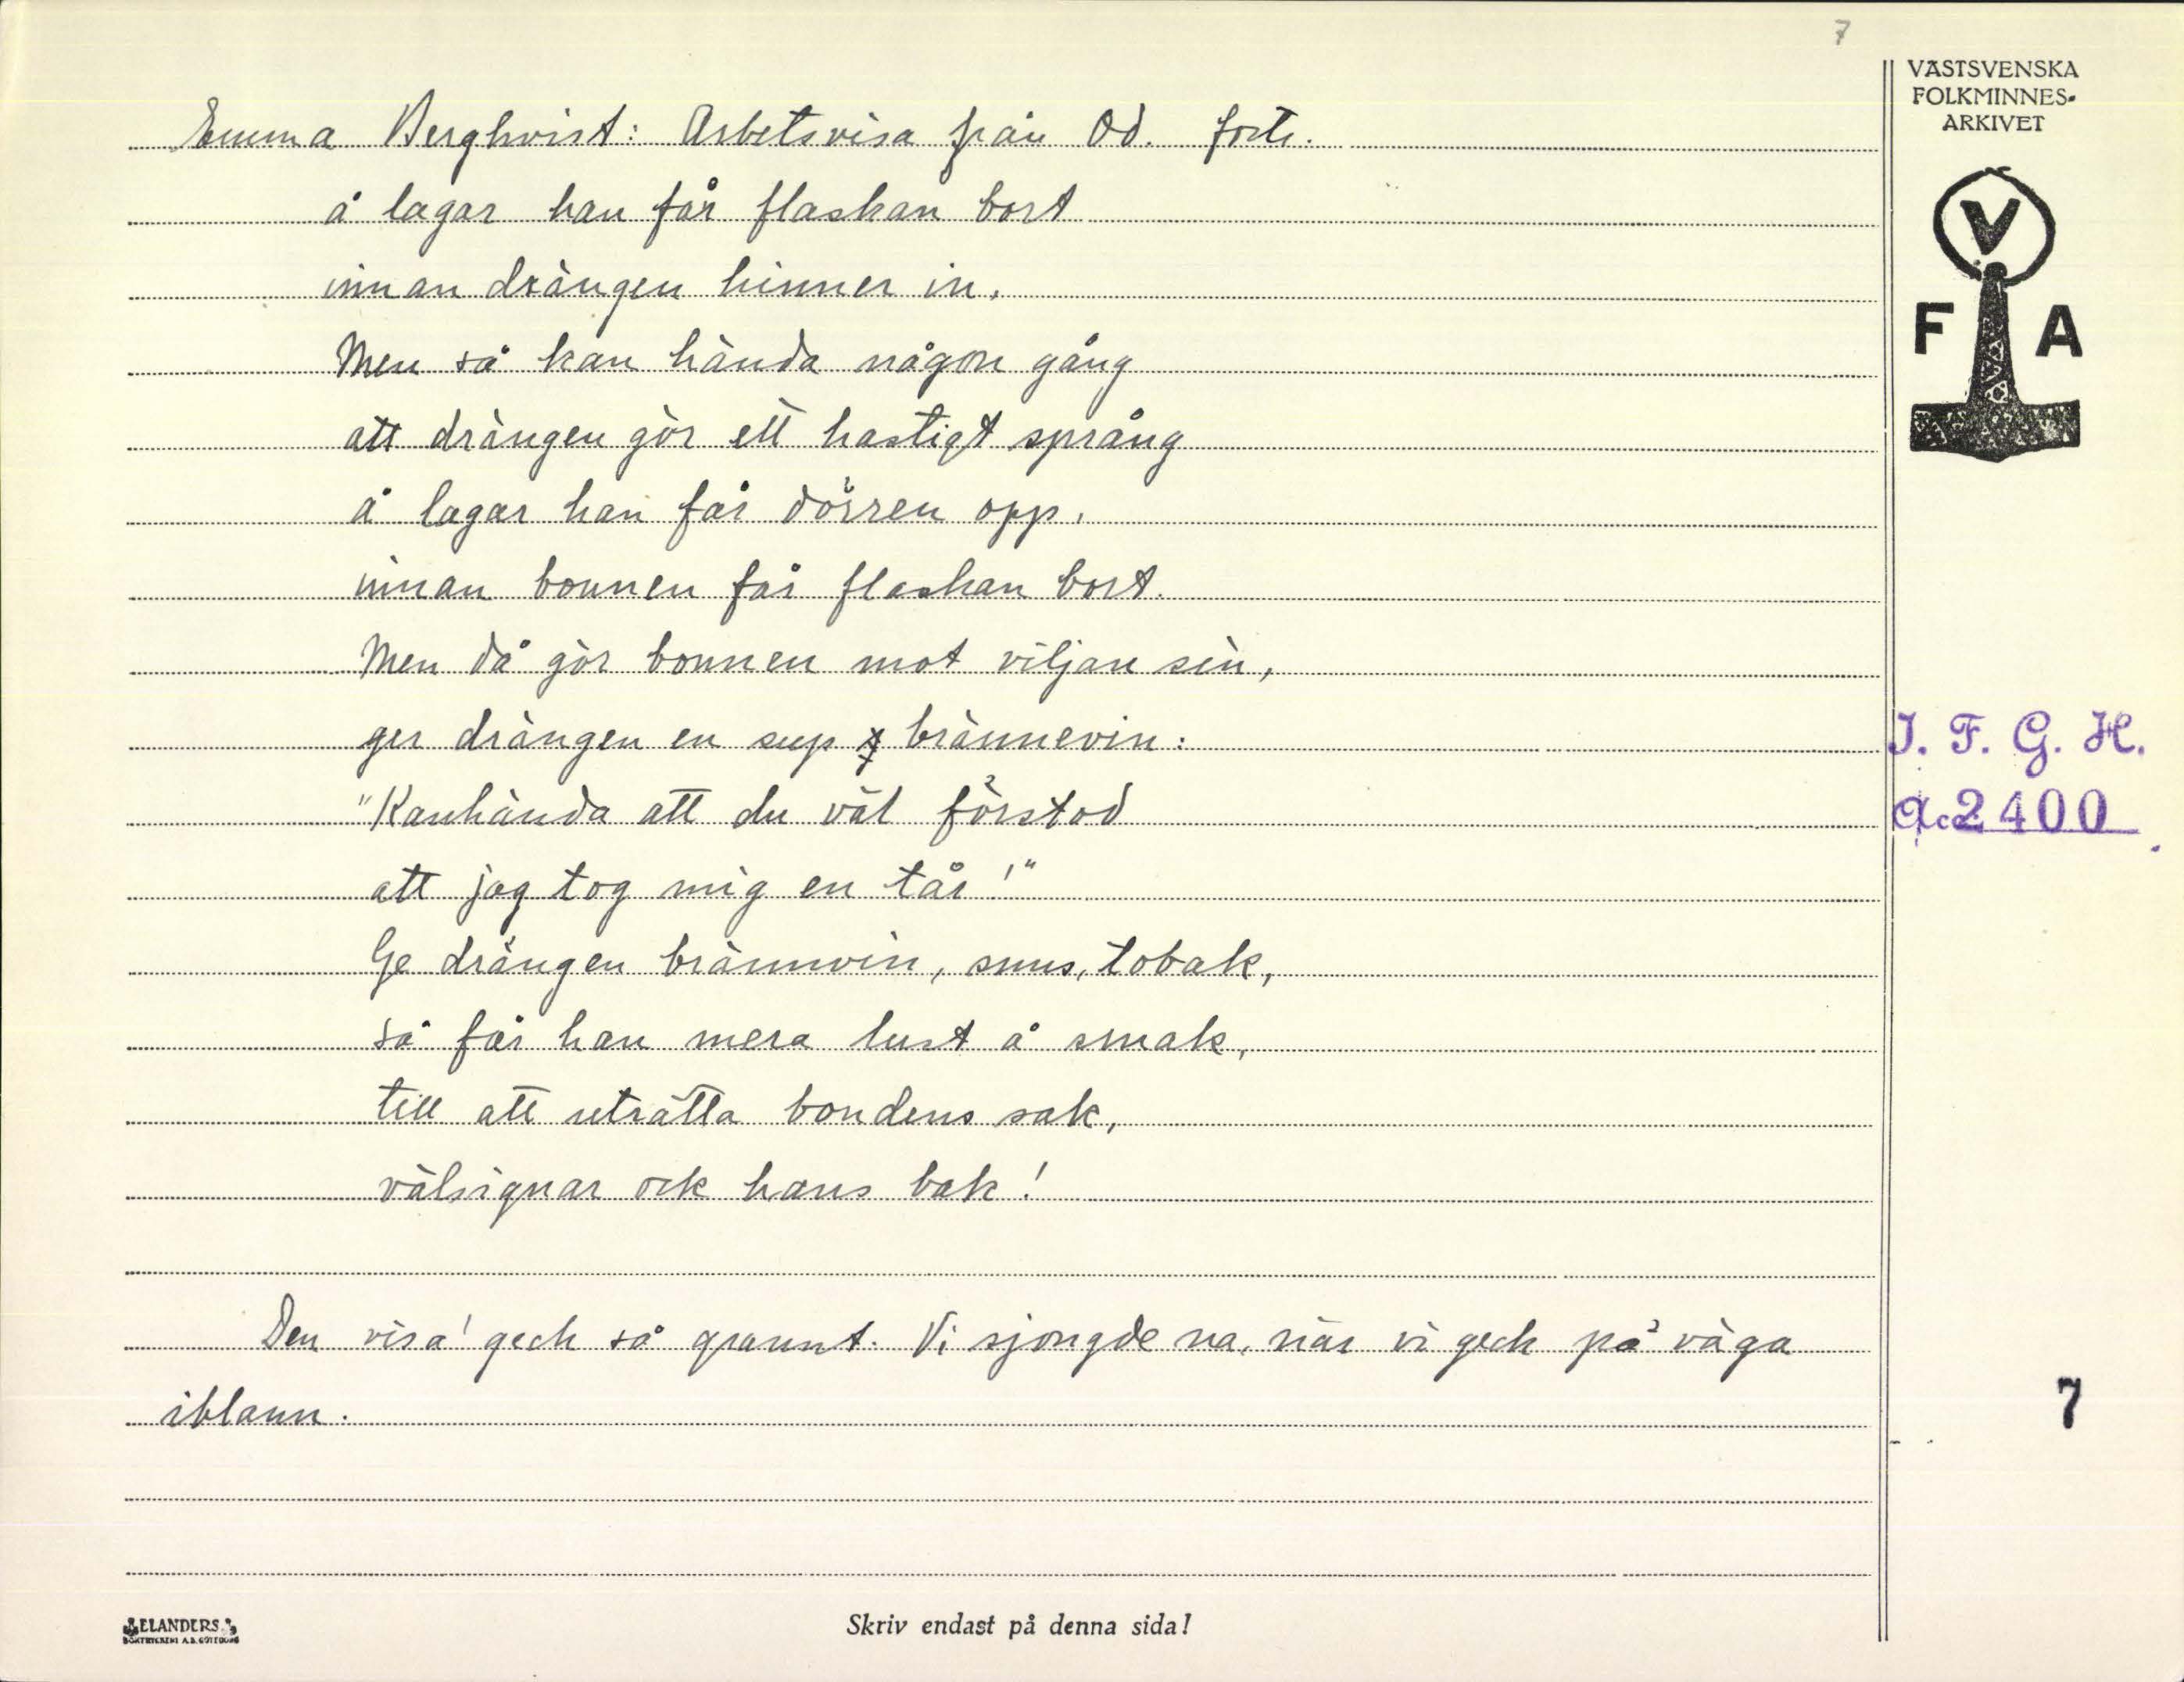 7
VÄSTSVENSKA
FOLKMINNES-
ARKIVET
V
F A
Emma Berghvist: Arbetsvisa från Od. forts.
å lagar han får flaskan bort
innan drängen hinner in.
Men så kan hända någon gång
att drängen gör ett hastigt språng
å lagar han får dörren opp.
innan bonnen får flaskan bort.
Men då gör bonnen mot viljan sin,
ger drängen en sup brännevin:
"Kanhända att du väl förstod
att jag tog mig en tår!"
Ge drängen brännvin, snus, tobak,
så får han mera lust å smak,
till att uträtta bondens sak,
välsignar ock hans bak!
Den visa! geck så grannt. Vi sjongde na, när vi geck på väga
iblann.
I. F. G. H.
Acc 2400
7
ELANDERS
BOKTRYCKERI A.B. GÖTEBORG
Skriv endast på denna sida!